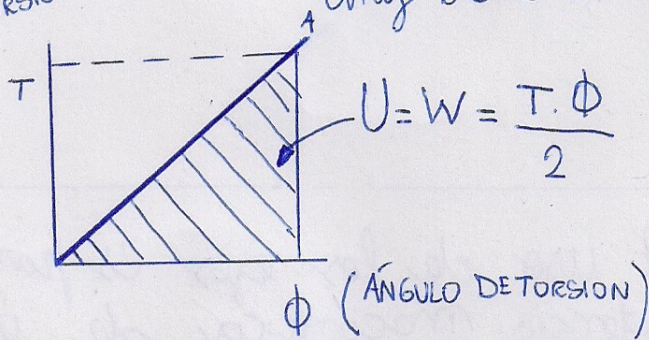 A
T
U = W = T. Φ / 2
Φ (ÁNGULO DE TORSION)